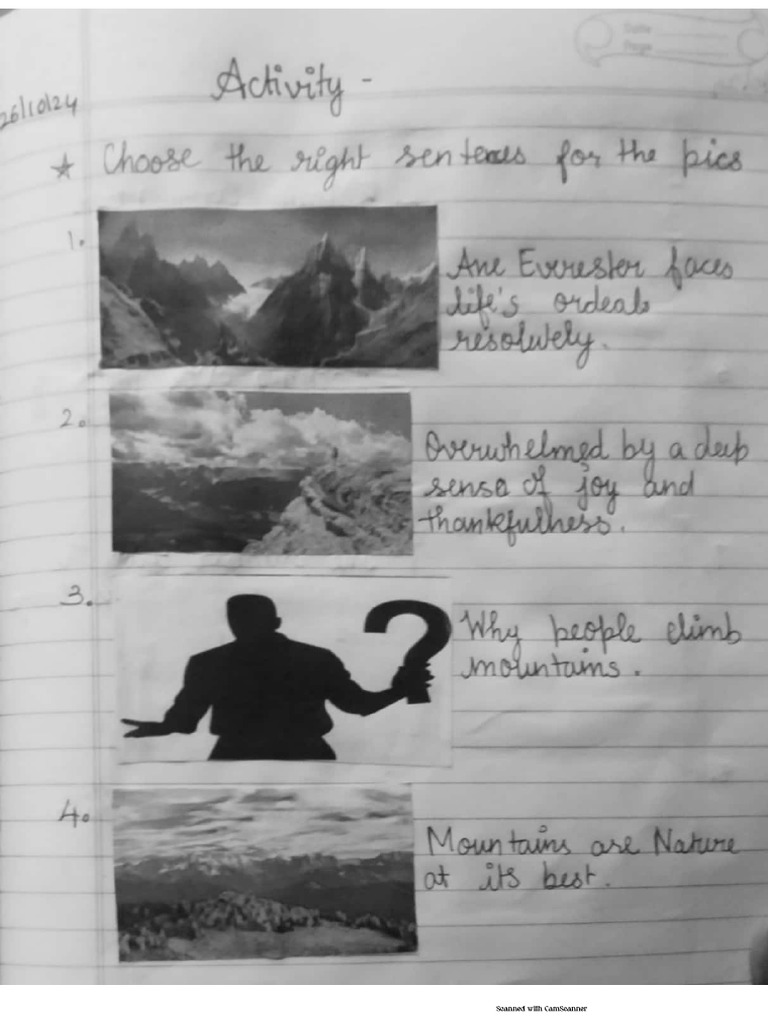 Activity -
26/10/24
☆ Choose the right sentences for the pics
1.
Ane Everester faces
life's ordeals
resolutely.
2.
Overwhelmed by a deep
sense of joy and
thankfulness.
3.
?
Why people climb
mountains.
4.
Mountains are Nature
at its best.
Scanned with CamScanner